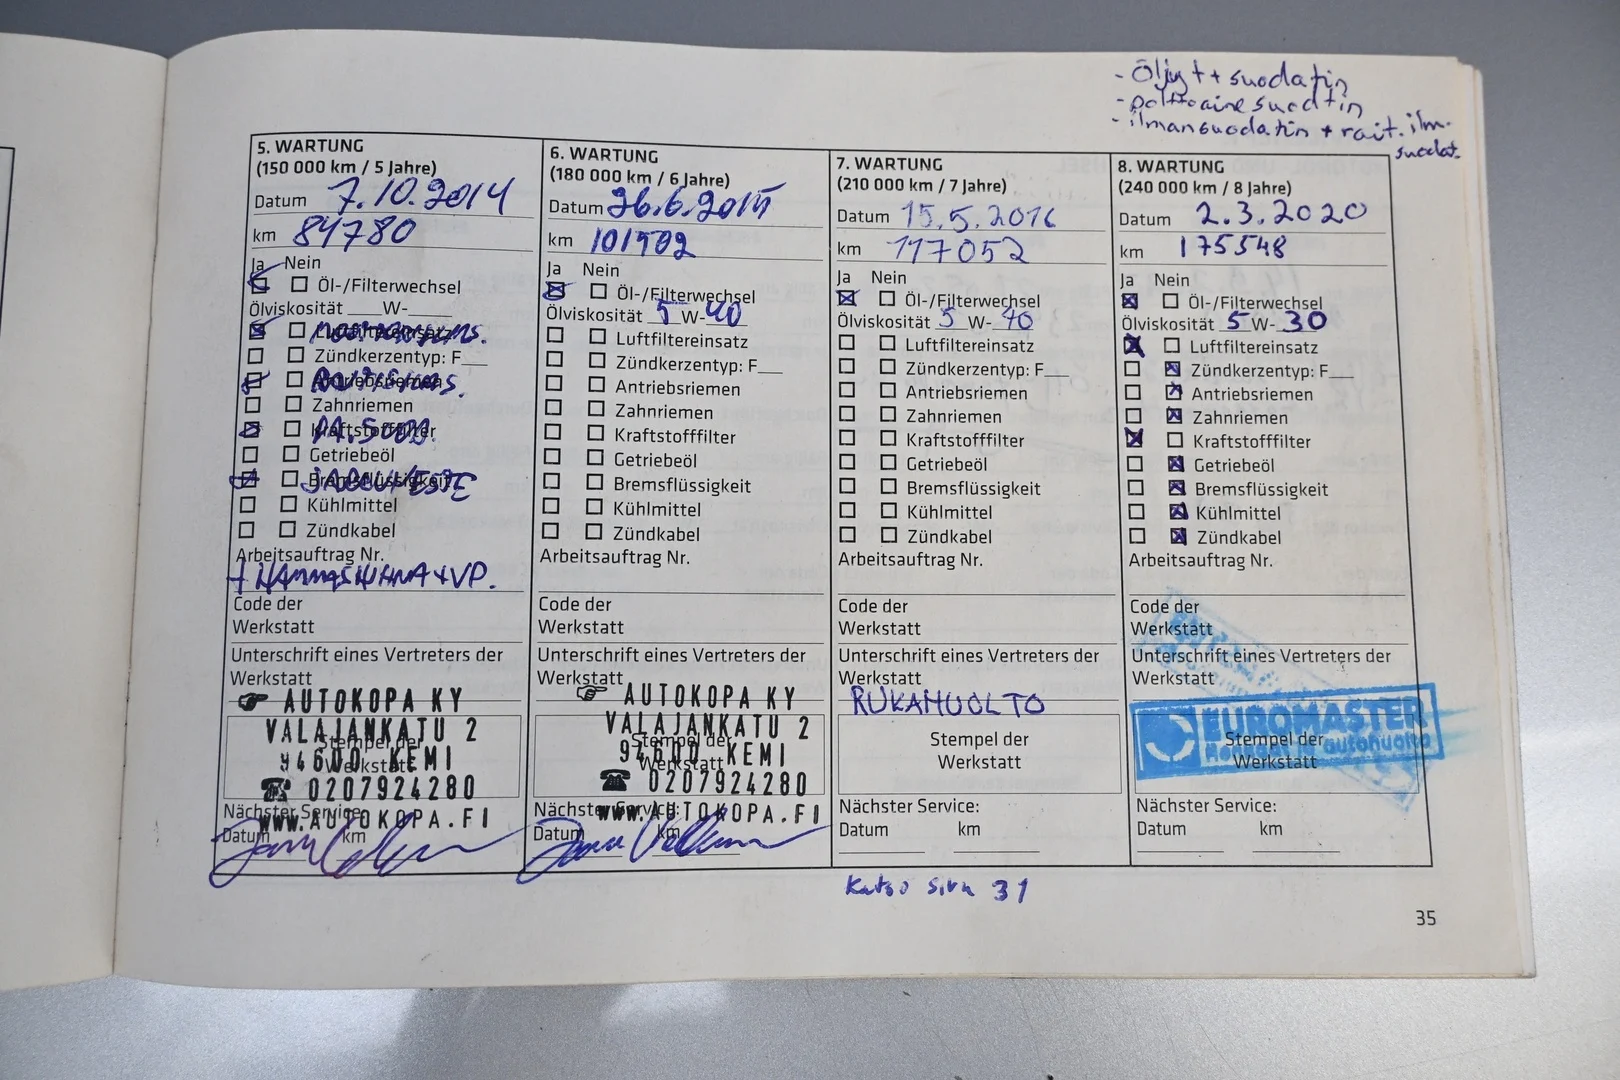 - Öljyt + suodatin
- polttoainesuodatin
- ilmansuodatin + rait. ilm.
suodat.
5. WARTUNG
(150 000 km / 5 Jahre)
Datum 7.10.2014
km 84780
Ja Nein
Öl-/Filterwechsel
Ölviskosität W-
Zündkerzentyp: F
Zahnriemen
PA.SUOD.
Getriebeöl
JARRUNESTE
Kühlmittel
Zündkabel
Arbeitsauftrag Nr.
+ HAMMASHIHNA + VP.
Code der
Werkstatt
Unterschrift eines Vertreters der
Werkstatt
AUTOKOPA KY
VALAJANKATU 2
Stempel der
94600 KEMI
Werkstatt
0207924280
Nächster Service:
www.AUTOKOPA.FI
Datum km
6. WARTUNG
(180 000 km / 6 Jahre)
Datum 26.6.2015
km 101502
Ja Nein
Öl-/Filterwechsel
Ölviskosität 5 W-40
Luftfiltereinsatz
Zündkerzentyp: F
Antriebsriemen
Zahnriemen
Kraftstofffilter
Getriebeöl
Bremsflüssigkeit
Kühlmittel
Zündkabel
Arbeitsauftrag Nr.
Code der
Werkstatt
Unterschrift eines Vertreters der
Werkstatt
AUTOKOPA KY
VALAJANKATU 2
Stempel der
94600 KEMI
Werkstatt
0207924280
Nächster Service:
www.AUTOKOPA.FI
Datum km
7. WARTUNG
(210 000 km / 7 Jahre)
Datum 15.5.2016
km 117052
Ja Nein
Öl-/Filterwechsel
Ölviskosität 5 W-40
Luftfiltereinsatz
Zündkerzentyp: F
Antriebsriemen
Zahnriemen
Kraftstofffilter
Getriebeöl
Bremsflüssigkeit
Kühlmittel
Zündkabel
Arbeitsauftrag Nr.
Code der
Werkstatt
Unterschrift eines Vertreters der
Werkstatt
RUKAHUOLTO
Stempel der
Werkstatt
Nächster Service:
Datum km
Katso sivu 31
8. WARTUNG
(240 000 km / 8 Jahre)
Datum 2.3.2020
km 175548
Ja Nein
Öl-/Filterwechsel
Ölviskosität 5 W-30
Luftfiltereinsatz
Zündkerzentyp: F
Antriebsriemen
Zahnriemen
Kraftstofffilter
Getriebeöl
Bremsflüssigkeit
Kühlmittel
Zündkabel
Arbeitsauftrag Nr.
Code der
Werkstatt
Unterschrift eines Vertreters der
Werkstatt
EUROMASTER
autohuolto
Stempel der
Werkstatt
Nächster Service:
Datum km
35